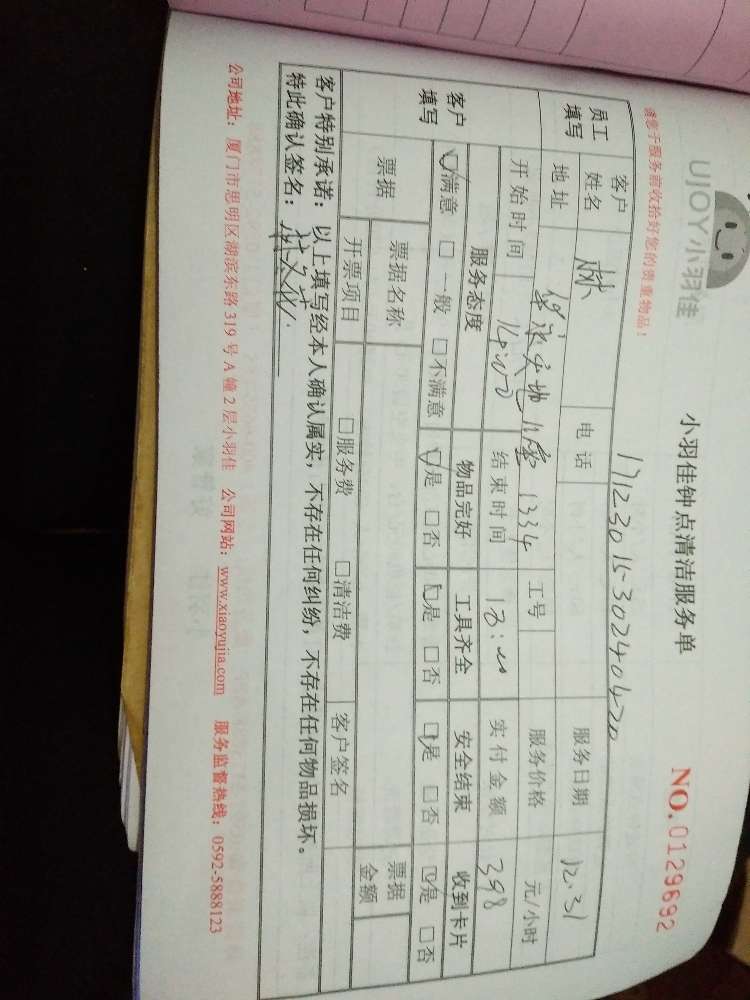 UJOY小羽佳
小羽佳钟点清洁服务单
NO.0129692
请您于服务前收拾好您的贵重物品！
1712301530240420
员工填写 客户姓名 林 电话 服务日期 12.31
地址 1334 工号 服务价格 元/小时
开始时间 结束时间 实付金额 398
客户填写 服务态度 物品完好 工具齐全 安全结束 收到卡片
☑满意 □一般 □不满意 ☑是 □否 ☑是 □否 ☑是 □否 ☑是 □否
票据 票据名称 票据金额
开票项目 □服务费 □清洁费 客户签名
客户特别承诺：以上填写经本人确认属实，不存在任何纠纷，不存在任何物品损坏。
特此确认签名：
公司地址：厦门市思明区湖滨东路319号A幢2层小羽佳 公司网站：www.xiaoyujia.com 服务监督热线：0592-5888123